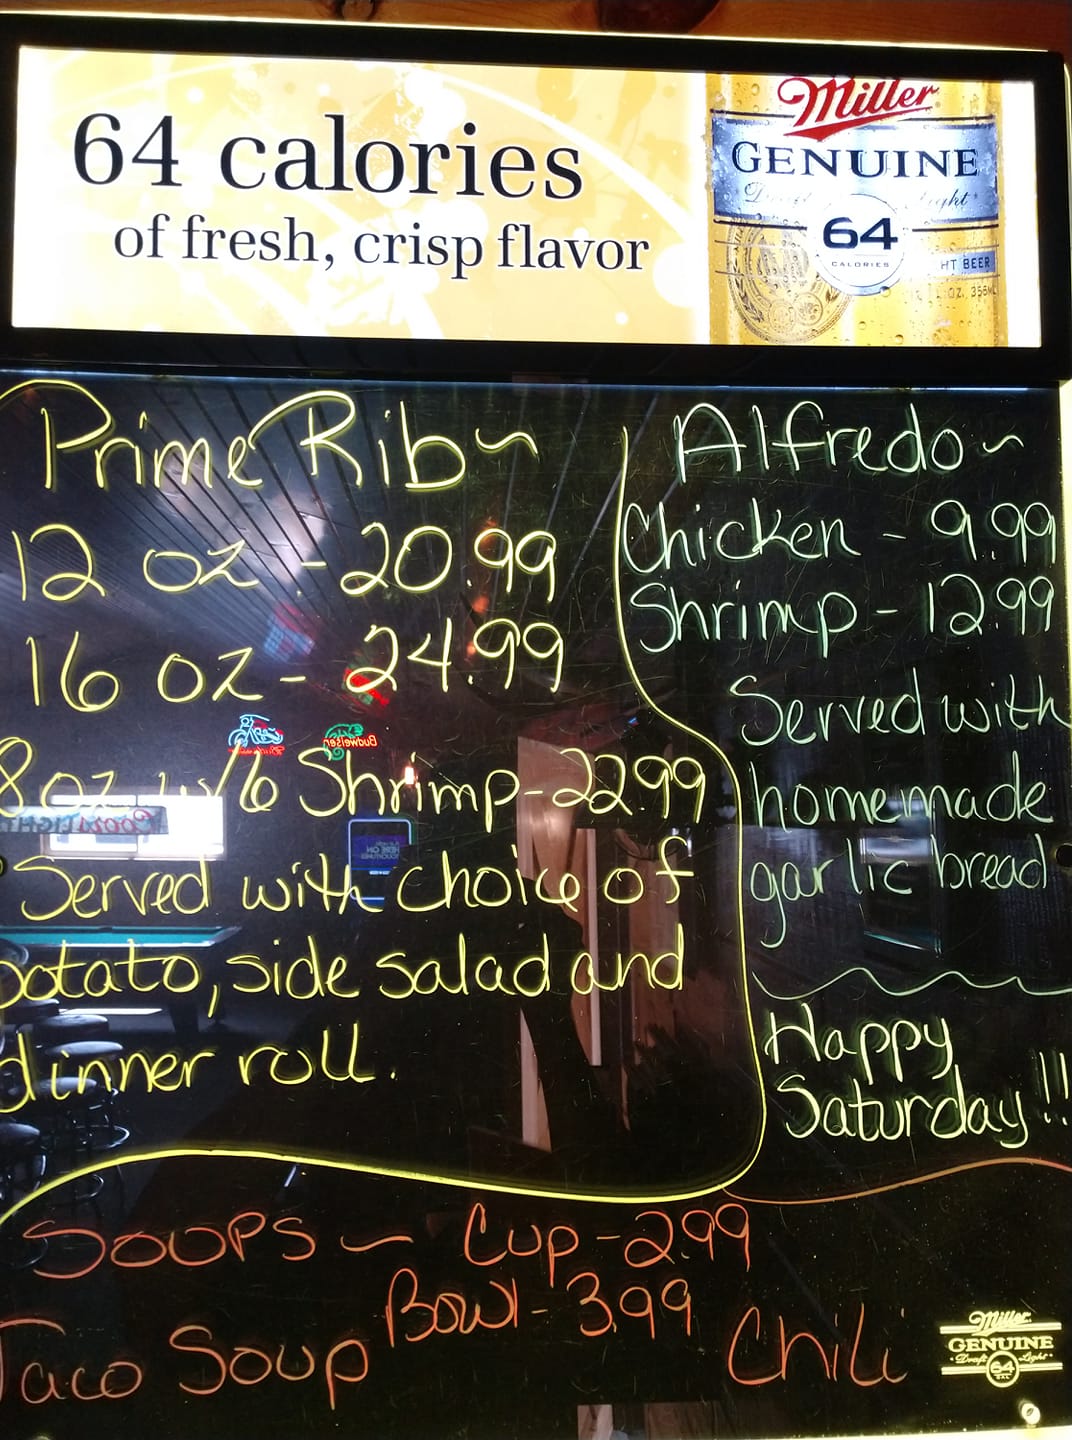 64 calories
of fresh, crisp flavor
Miller
GENUINE
Draft Light
64
CALORIES
HT BEER
OZ. 355ML
Prime Rib~
12 oz - 20.99
16 oz - 24.99
8 oz w/6 Shrimp - 22.99
Served with choice of
potato, side salad and
dinner roll.
Alfredo~
Chicken - 9.99
Shrimp - 12.99
Served with
homemade
garlic bread
Happy
Saturday!!
Budweiser
Coors LIGHT
SOUPS ~ Cup - 2.99
Bowl - 3.99
Taco Soup
Chili
Miller
GENUINE
Draft Light
64
CAL